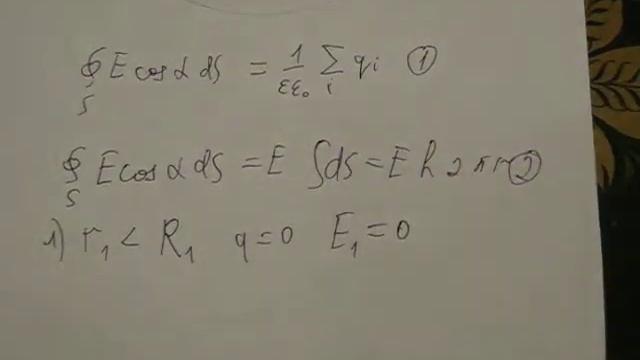 ∮_S E cos α dS = 1/(εε₀) Σ_i q_i ①
∮_S E cos α dS = E ∫dS = E h 2 π r ②
1) r₁ < R₁ q = 0 E₁ = 0